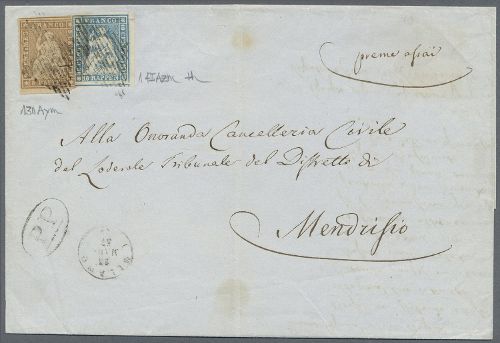 FRANCO
FRANCO
10 RAPPEN
preme assai
13IIAym
14IIAzm
Alla Onoranda Cancelleria Civile
del Lodevole Tribunale del Distretto di
Mendrisio
P.P.